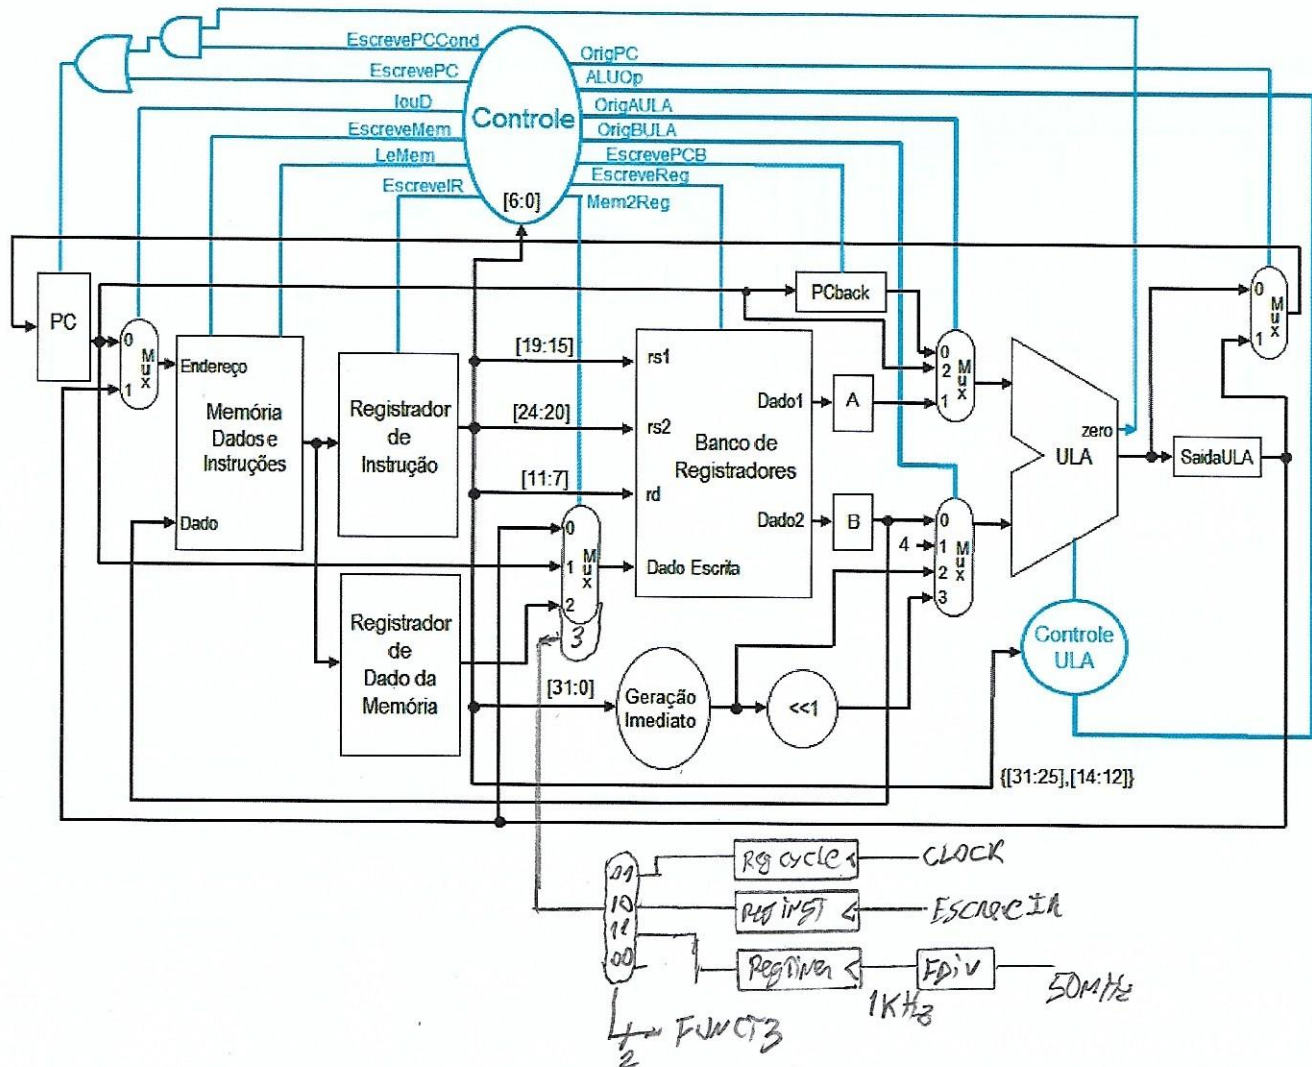 EscrevePCCond
EscrevePC
IouD
EscreveMem
LeMem
EscreveIR
Controle
[6:0]
OrigPC
ALUOp
OrigAULA
OrigBULA
EscrevePCB
EscreveReg
Mem2Reg
PC
0
1
Mux
Endereço
Memória
Dados e
Instruções
Dado
Registrador
de
Instrução
Registrador
de
Dado da
Memória
[19:15]
[24:20]
[11:7]
[31:0]
0
1
2
3
Mux
rs1
rs2
rd
Dado Escrita
Banco de
Registradores
Dado1
Dado2
A
B
PCback
0
2
1
Mux
4
0
1
2
3
Mux
Geração
Imediato
<<1
zero
ULA
Controle
ULA
SaidaULA
0
1
Mux
{[31:25],[14:12]}
01
10
11
00
Reg cycle
CLOCK
Reg inst
ESCREVEIR
RegTimer
1KHz
FDiv
50MHz
2
FUNCT3